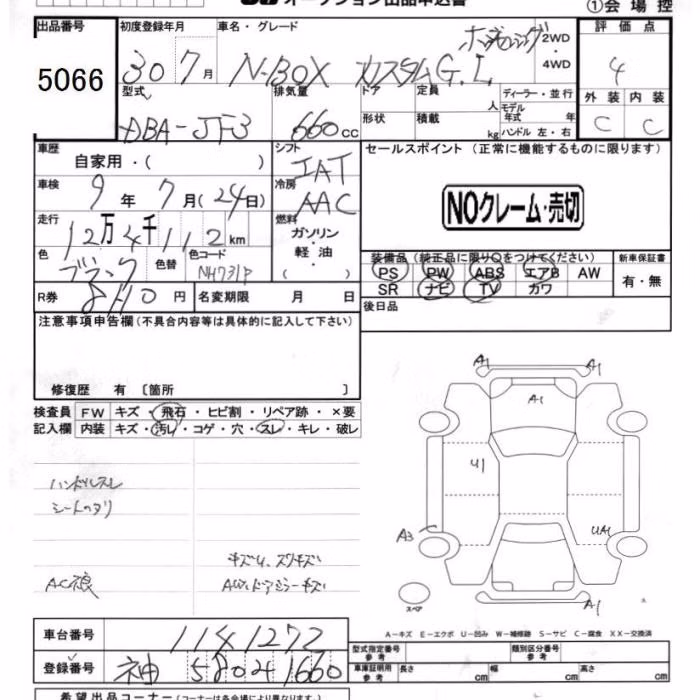 オークション出品申込書 ①会場控
出品番号 初度登録年月 車名・グレード 評価点
5066 30年7月 N-BOX カスタムG.L ホンダセンシング 2WD・4WD 4
型式 排気量 ドア 定員 ディーラー・並行 外装 内装
DBA-JF3 660cc 形状 積載 人 kg モデル年式 年 ハンドル 左・右 C C
車歴 自家用・( ) シフト IAT セールスポイント (正常に機能するものに限ります)
車検 9年7月(24日) 冷房 AAC NOクレーム・売切
走行 12万4千112km 燃料 ガソリン・軽油・( )
色 ブラック 色替 色コード NH731P 装備品 (純正品に限り○をつけてください) 新車保証書
PS PW ABS エアB AW 有・無
SR ナビ TV カワ
R券 円 名変期限 月 日 後日品
注意事項申告欄 (不具合内容等は具体的に記入して下さい)
修復歴 有 〔箇所 〕
検査員記入欄 FW キズ・飛石・ヒビ割・リペア跡・×要
内装 キズ・汚レ・コゲ・穴・スレ・キレ・破レ
A1 A1
A1
U1
ハンドルスレ
シートヘタリ
A3 UA1
キズU、スリキズ
AC痕 AW、ドアミラーキズ
スペア A1
A-キズ E-エクボ U-凹み W-補修跡 S-サビ C-腐食 XX-交換済
車台番号 1141272
型式指定番号 参考 類別区分番号
登録番号 神 580 そ 1660
車庫証明用 参考 長さ cm 幅 cm 高さ cm
希望出品コーナー (コーナーは各会場により異なります。)